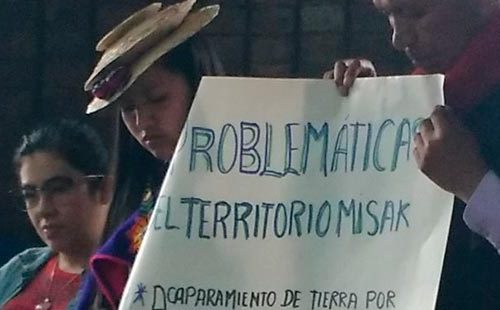 ROBLEMÁTICA
EL TERRITORIO MISAK
* DCAPARAMIENTO DE TIERRA POR